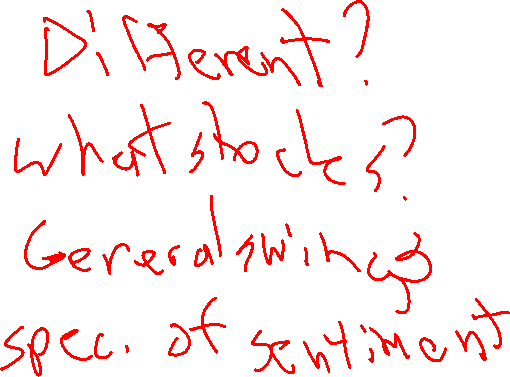 Different?
what stocks?
General swings
spec. of sentiment